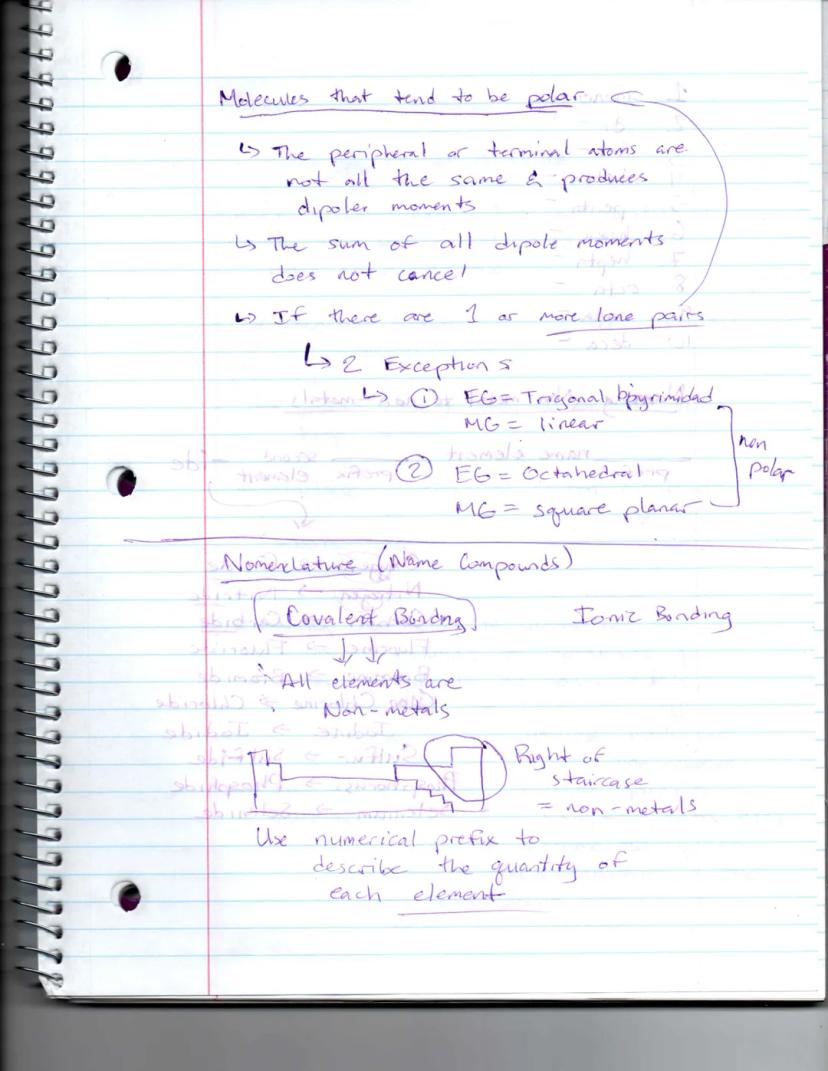 Molecules that tend to be polar
↳ The peripheral or terminal atoms are
not all the same & produces
dipoler moments
↳ The sum of all dipole moments
does not cancel
↳ If there are 1 or more lone pairs
↳ 2 Exceptions
↳ ① EG = Trigonal bipyrimidad
MG = linear
② EG = Octahedral
MG = square planar
non
polar
Nomenclature (Name Compounds)
Covalent Bonding Ionic Bonding
All elements are
Non-metals
Right of
staircase
= non-metals
Use numerical prefix to
describe the quantity of
each element